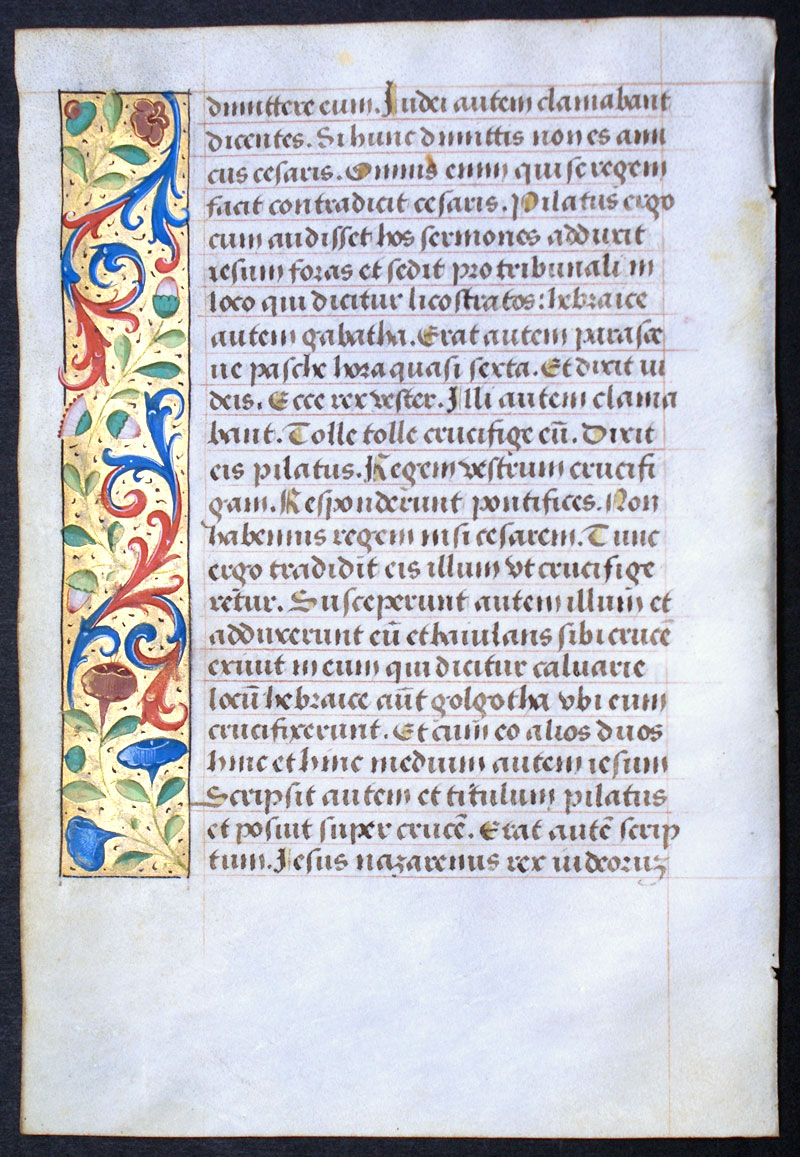 dimittere eum. Iudei autem clamabant
dicentes. Si hunc dimittis non es ami
cus cesaris. Omnis enim qui se regem
facit contradicit cesaris. Pilatus ergo
cum audisset hos sermones adduxit
iesum foras et sedit pro tribunali in
loco qui dicitur licostratos: hebraice
autem gabatha. Erat autem parasce
ue pasche hora quasi sexta. Et dixit iu
deis. Ecce rex vester. Illi autem clama
bant. Tolle tolle crucifige eū. Dixit
eis pilatus. Regem vestrum crucifi
gam. Responderunt pontifices. Non
habemus regem nisi cesarem. Tunc
ergo tradidit eis illum vt crucifige
retur. Susceperunt autem illum et
adduxerunt eū et baiulans sibi crucē
exiuit in eum qui dicitur caluarie
locū hebraice aūt golgotha vbi eum
crucifixerunt. Et cum eo alios duos
hinc et hinc medium autem iesum
Scripsit autem et titulum pilatus
et posuit super crucē. Erat autē scrip
tum. Iesus nazarenus rex iudeoruz